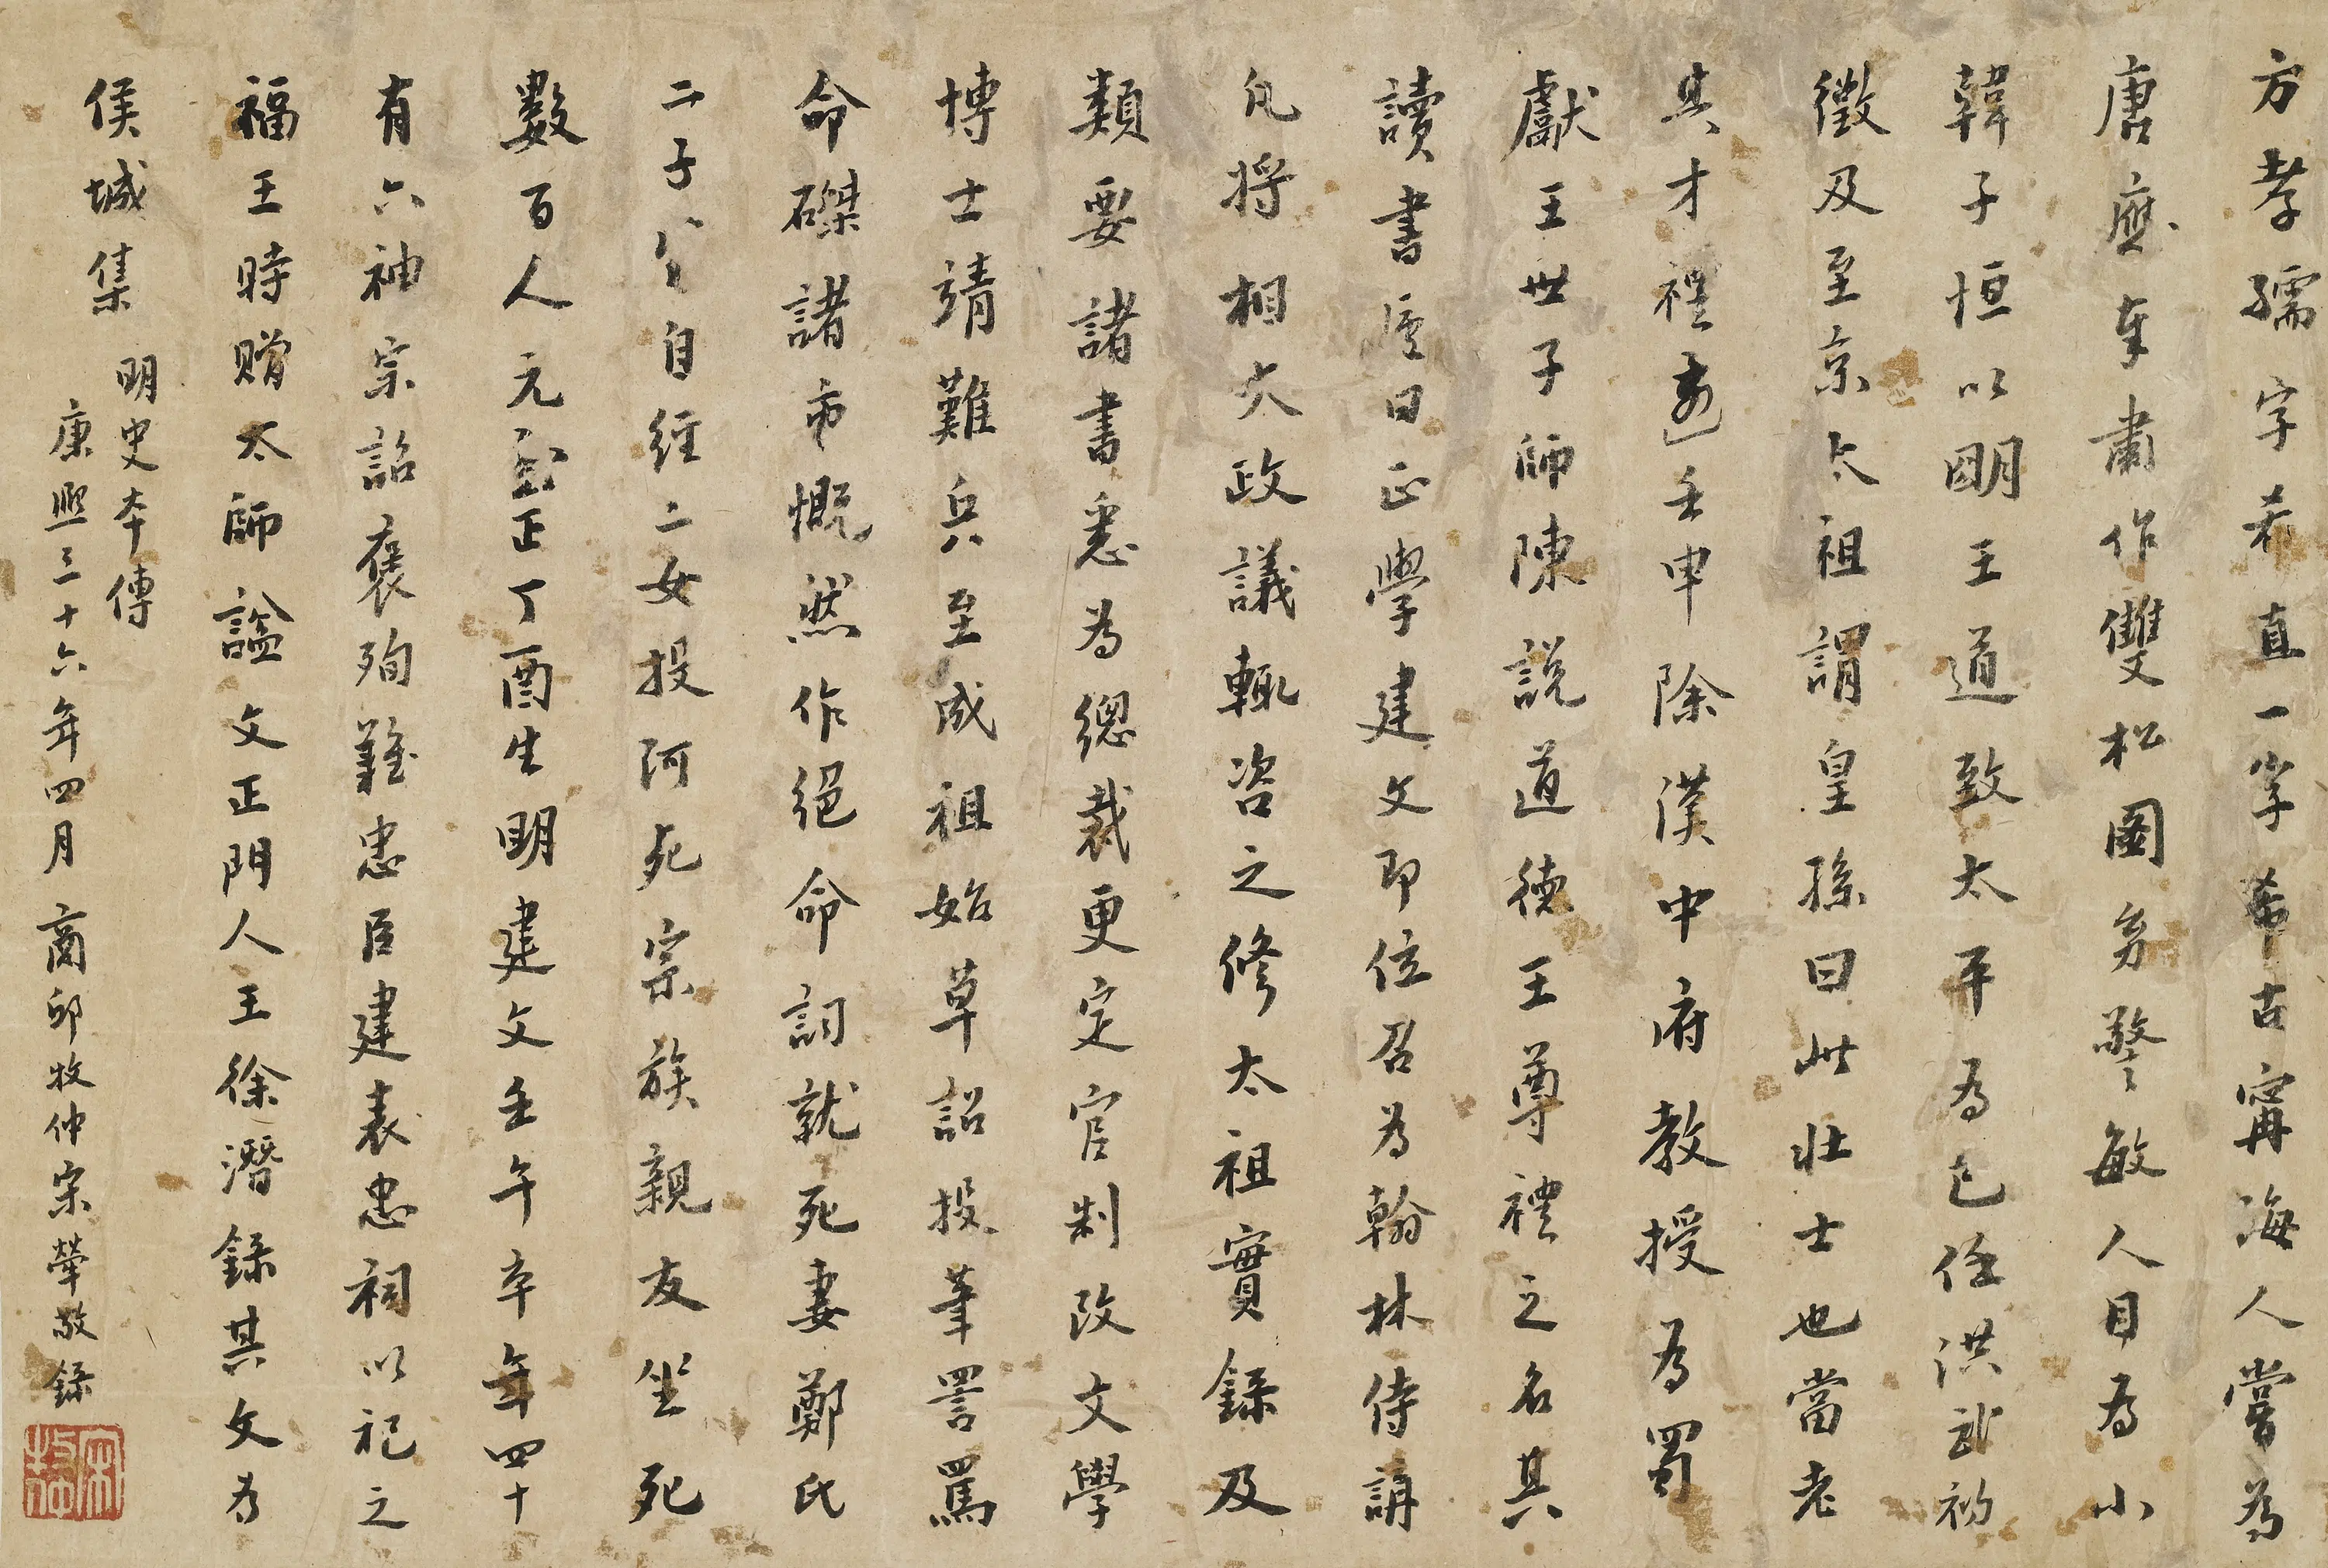 方孝孺字希直一字希古甯海人嘗為
唐應奉肅作雙松圖券警敏人目為小
韓子恒以明王道致太平為己任洪武初
徵及至京太祖謂皇孫曰此壯士也當老
其才禮遣壬申除漢中府教授為蜀
獻王世子師陳說道德王尊禮之名其
讀書廬曰正學建文即位召為翰林侍講
凡將相大政議輒咨之修太祖實錄及
類要諸書悉為總裁更定官制改文學
博士靖難兵至成祖始草詔投筆詈罵
命磔諸市慨然作絕命詞就死妻鄭氏
二子先自經二女投河死宗族親友坐死
數百人元至正丁酉生明建文壬午卒年四十
有六神宗詔褒殉難忠臣建表忠祠以祀之
福王時贈太師諡文正門人王徐潛錄其文為
侯城集 明史本傳
康熙三十六年四月商邱牧仲宋犖敬錄